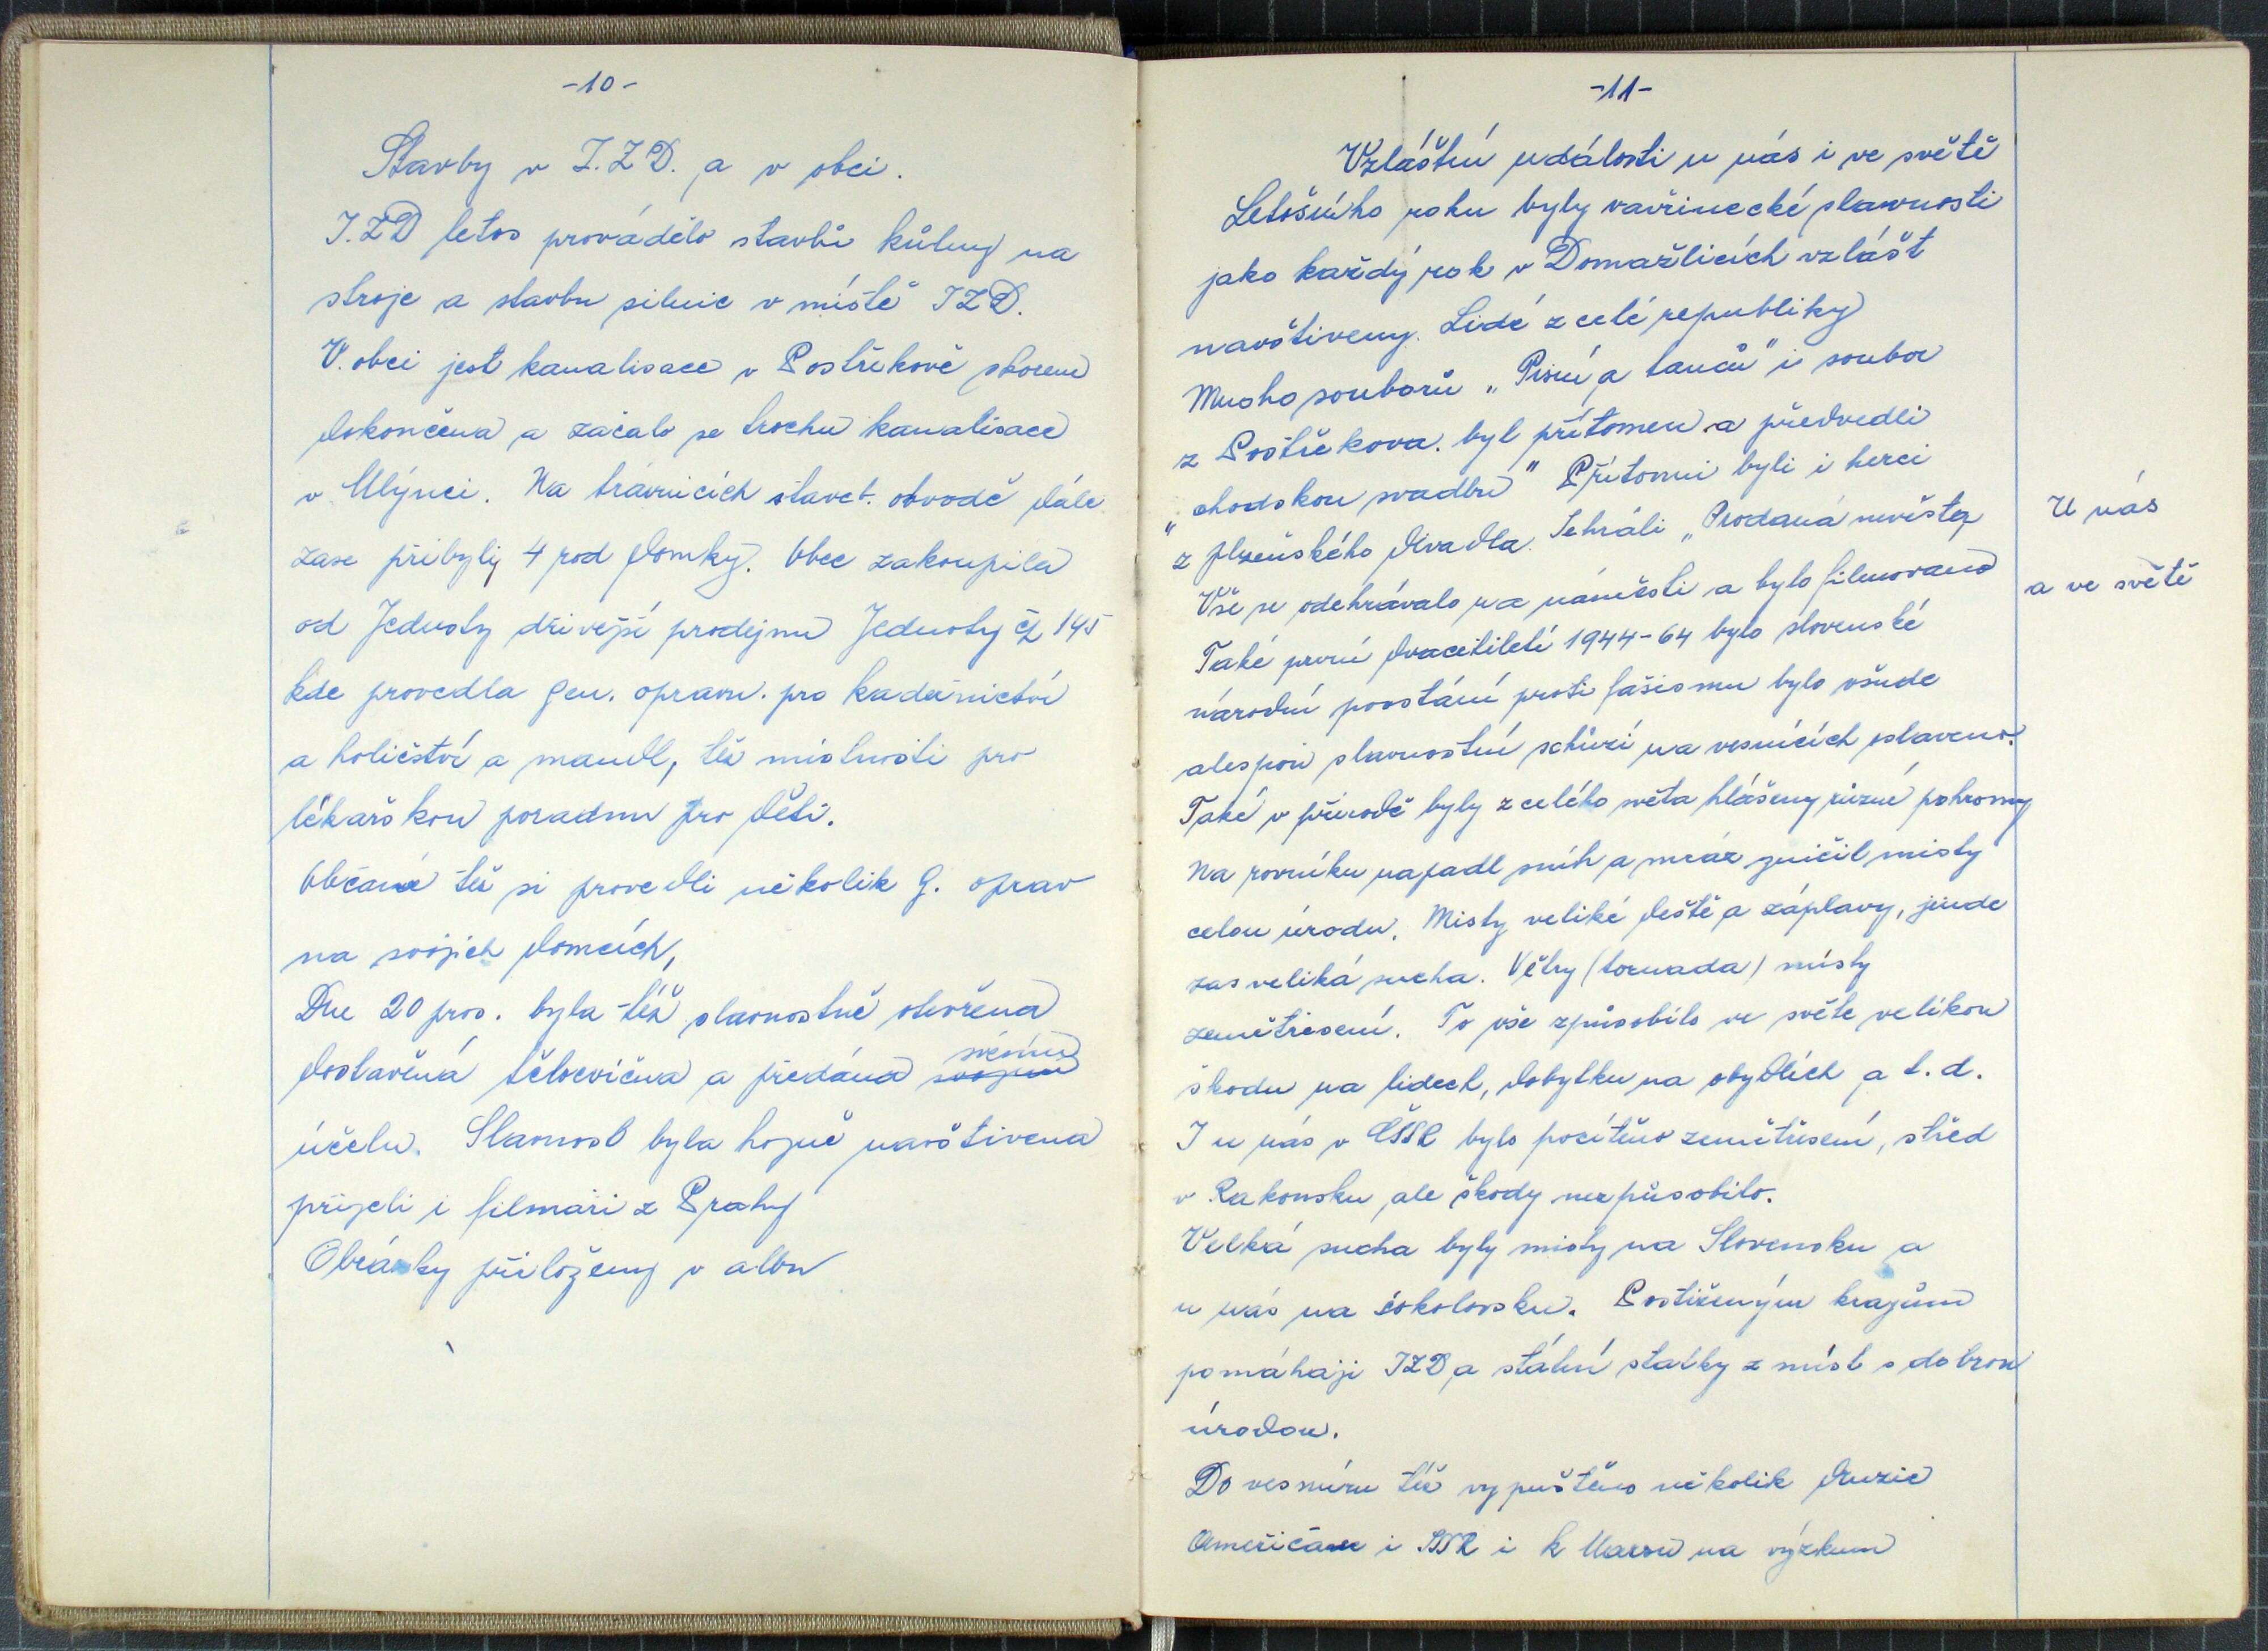 -10-
Stavby v J.Z.D. a v obci.
J.ZD letos provádělo stavbu kůlny na
stroje a stavbu silnic v místě JZD.
V. obci jest kanalisace v Postřekově skorem
dokončena a začalo se trochu kanalisace
v Mlýnci. Na trávnicích stavet. obvodě dále
zase přibyly 4 rod domky. Obec zakoupila
od Jednoty dřivejší prodejnu Jednoty čp 145
kde provedla gen. opravu. pro kadeřnictví
a holičství a mandl, též místnosti pro
lékařskou poradnu pro děti.
Občané též si provedli několik G. oprav
na svojich domcích,
Dne 20 pros. byla též slavnostně otevřena
dostavěná tělocvična a předána svojemu svému
účelu. Slavnost byla hojně navštivena
přijeli i filmaři z Prahy
Obrázky přiloženy v albu
-11-
Vzláštní události u nás i ve světě
Letošního roku byly vavřinecké slavnosti
jako každý rok v Domažlicích vzlášt
navštiveny. Lidé z celé republiky
Mnoho souborů „Písní a tanců" i soubor
z Postřekova. byl přítomen a předvedli
„chodskou svadbu" Přítomni byli i herci
z plzeňského divadla. Sehráli „Prodaná nevěsta
U nás
Vše se odehrávalo na náměsti a bylo filmovano
a ve světě
Také první dvacitiletí 1944-64 bylo slovenské
národní povstání proti fašismu bylo všude
alespoň slavnostní schůzí na vesnicích oslaveno.
Také v přírodě byly z celého světa hlášeny různé pohromy
Na rovníku napadl sníh a mráz zničil misty
celou úrodu. Misty veliké deště a záplavy, jinde
zas veliká sucha. Větry (tornada) místy
zemětřesení. To vše způsobilo ve světe velikou
škodu na lidech, dobytku na obydlích a t. d.
I u nás v ČSSR bylo pocítěno zemětřesení, střed
v Rakousku ale škody nezpůsobilo.
Velká sucha byly misty na Slovensku a
u nás na sokolovsku. Postiženým krajům
pomáhaji JZD a státní statky z míst s dobrou
úrodou.
Do vesmíru též vypuštěno několik družic
Američane i SSSR i k Marsu na výzkum